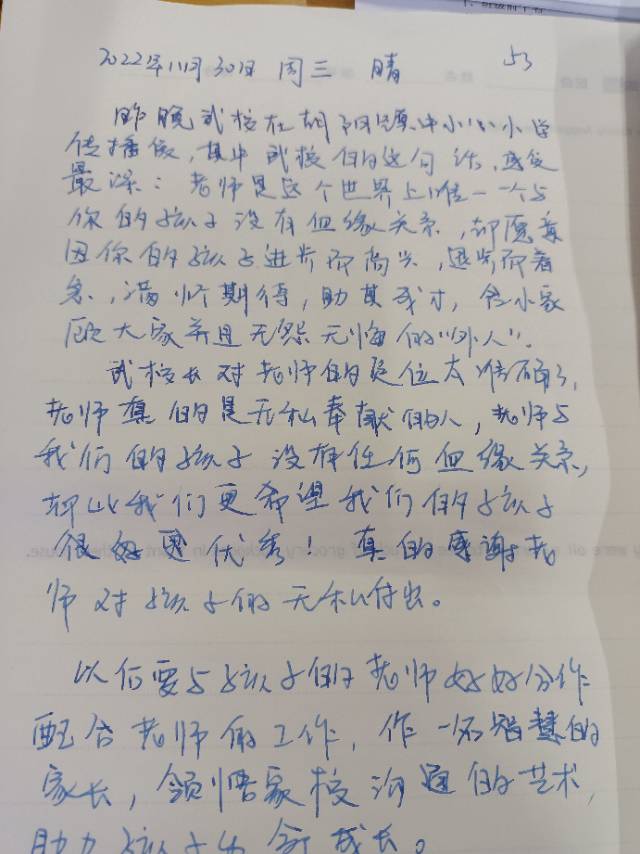 2022年11月30日 周三 晴 53
昨晚武校在胡阳镇中小小学
传播爱,其中武校的这句话,感受
最深:老师是这个世界上唯一一个与
你的孩子没有血缘关系,却愿意
因你的孩子进步而高兴,退步而着
急,满怀期待,助其成才,舍小家
顾大家并且无怨无悔的"外人".
武校长对老师的定位太准确了,
老师真的是无私奉献的人,老师与
我们的孩子没有任何血缘关系,
却比我们更希望我们的孩子
很好更优秀!真的感谢老
师对孩子的无私付出。
以后要与孩子的老师好好合作
配合老师的工作,作一名智慧的
家长,领悟家校沟通的艺术,
助力孩子成长。